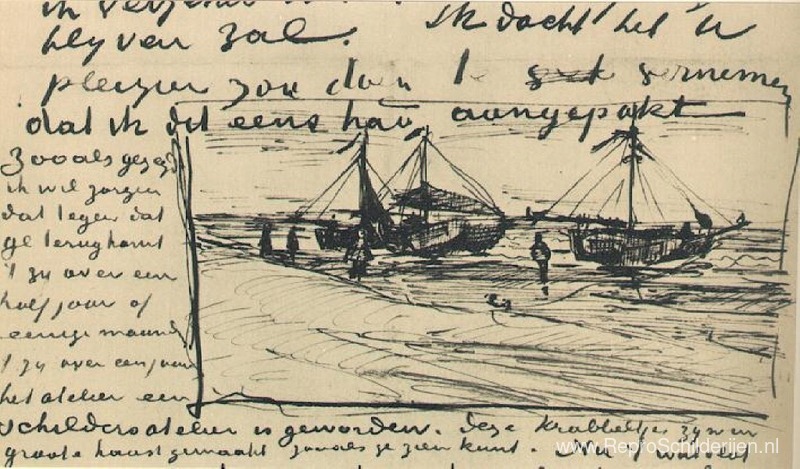 blyven zal. Ik dacht het U
plezier zou doen te vernemen
dat ik dit eens had aangepakt
Zooals gezegd
ik wil zorgen
dat tegen dat
ge terugkomt
't zy over een
half jaar of
eenige maand
't zy over een jaar
het atelier een
schildersatelier is geworden. Deze krabbeltjes zyn in
groote haast gemaakt zooals je zien kunt.
www.ReproSchilderijen.nl